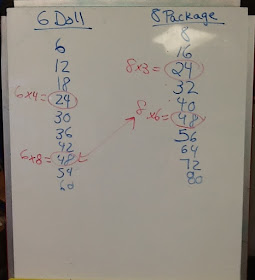 6 Doll
6
12
18
6x4= 24
30
36
42
6x8= 48
54
60
8 Package
8
16
8x3= 24
32
40
8 x6= 48
56
64
72
80